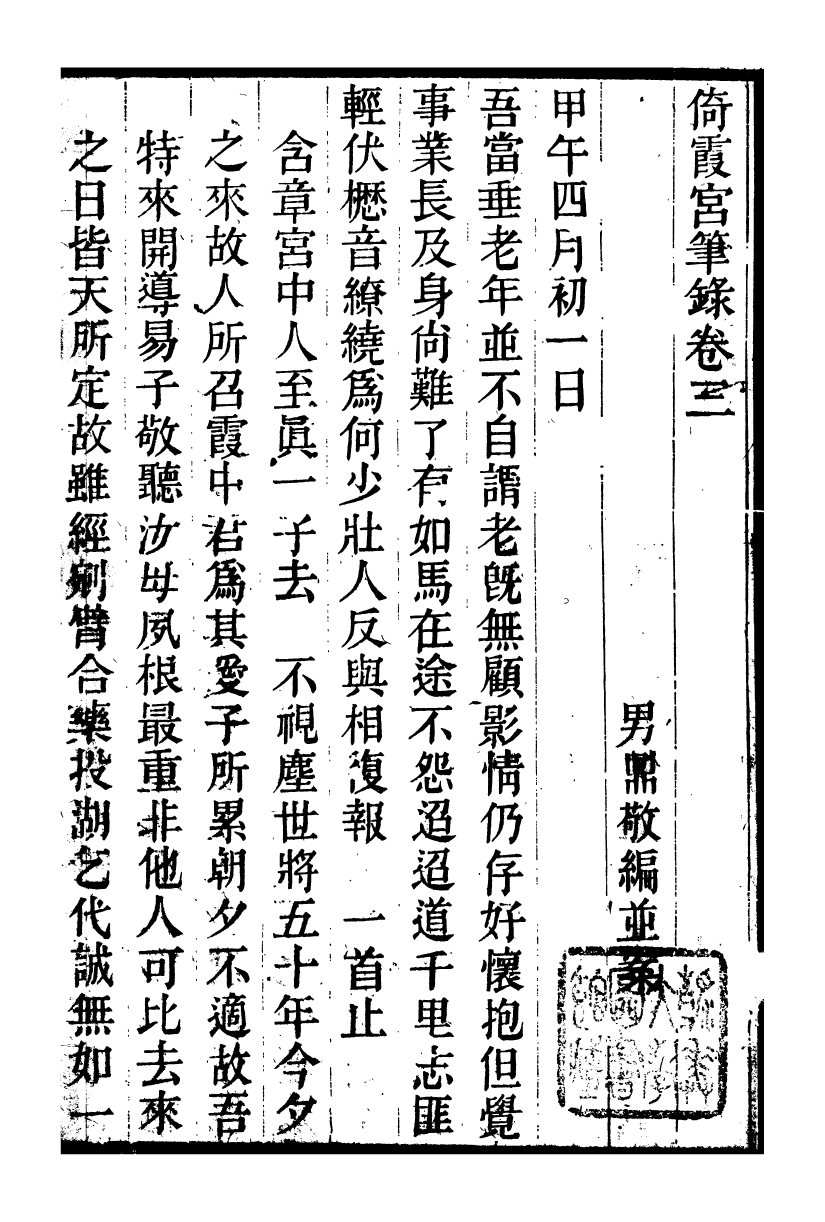 倚霞宮筆錄卷三
男鼎敬編並案
甲午四月初一日
吾當垂老年並不自謂老旣無顧影情仍存好懷抱但覺
事業長及身尙難了有如馬在途不怨迢迢道千里志匪
輕伏櫪音繚繞爲何少壯人反與相復報　一首止
含章宮中人至眞一子去　不視塵世將五十年今夕
之來故人所召霞中君爲其愛子所累朝夕不適故吾
特來開導易子敬聽汝母夙根最重非他人可比去來
之日皆天所定故雖經刲臂合藥投湖乞代誠無如一